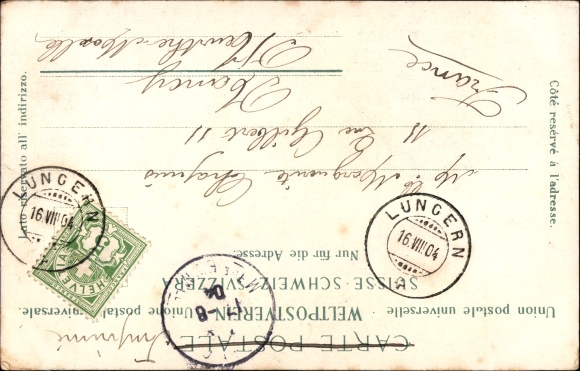 CARTE POSTALE
Union postale universelle. WELTPOSTVEREIN. Unione postale universale.
SUISSE · SCHWEIZ · SVIZZERA
Nur für die Adresse.
Côté réservé à l'adresse.
Lato riservato all' indirizzo.
Imprimé
Marguerite
11 Rue Gilbert 11
Nancy
Meurthe-Moselle
France
HELVETIA
LUNGERN
16.VIII.04
LUNGERN
16.VIII.04
NANCY
04